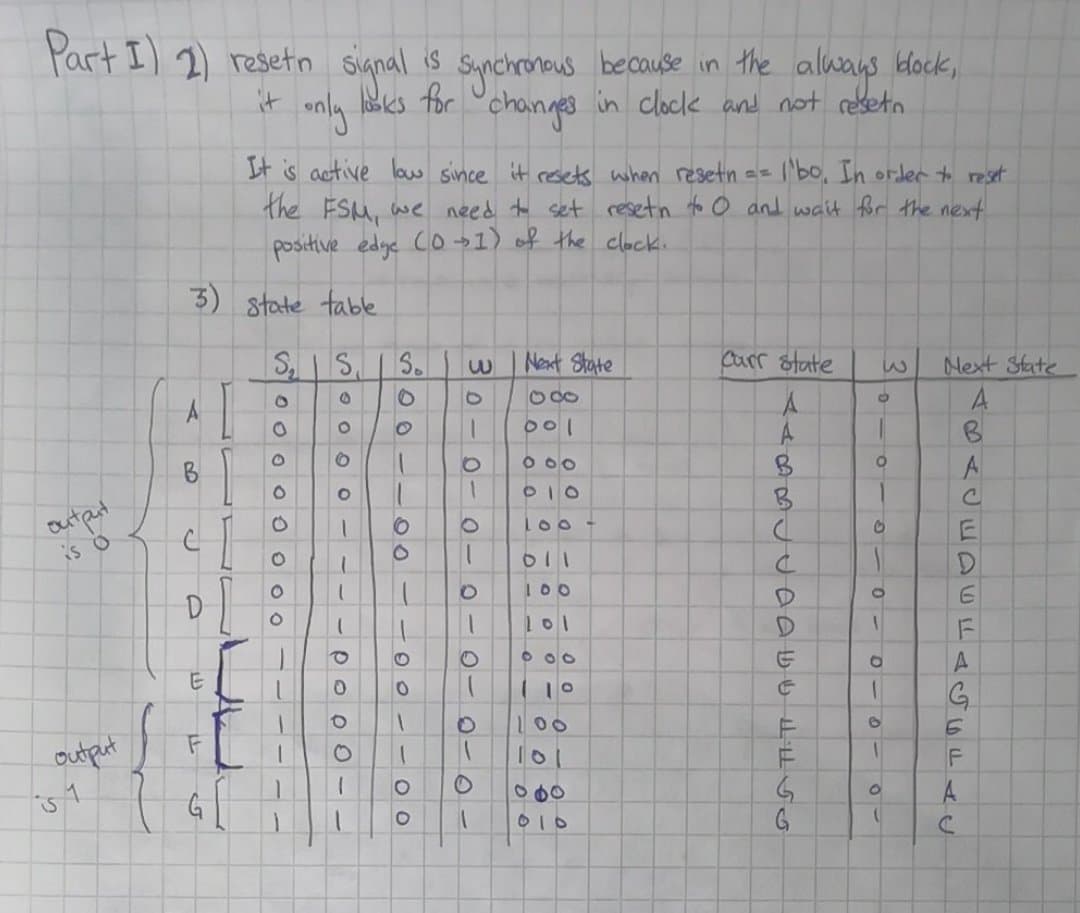 Part I) 2) resetn signal is synchronous because in the always block,
it only looks for changes in clock and not resetn
It is active low since it resets when resetn == 1'b0. In order to reset
the FSM, we need to set resetn to 0 and wait for the next
positive edge (0→1) of the clock.
3) state table
S₂ | S₁ | S₀ | w | Next State
A [ 0 0 0 0 000
0 0 0 1 001
B [ 0 0 1 0 000
0 0 1 1 010
C [ 0 1 0 0 100
0 1 0 1 011
D [ 0 1 1 0 100
0 1 1 1 101
E [ 1 0 0 0 000
1 0 0 1 110
F [ 1 0 1 0 100
1 0 1 1 101
G [ 1 1 0 0 000
1 1 0 1 010
output
is 0
output
is 1
Curr State | w | Next State
A 0 A
A 1 B
B 0 A
B 1 C
C 0 E
C 1 D
D 0 E
D 1 F
E 0 A
E 1 G
F 0 E
F 1 F
G 0 A
G 1 C